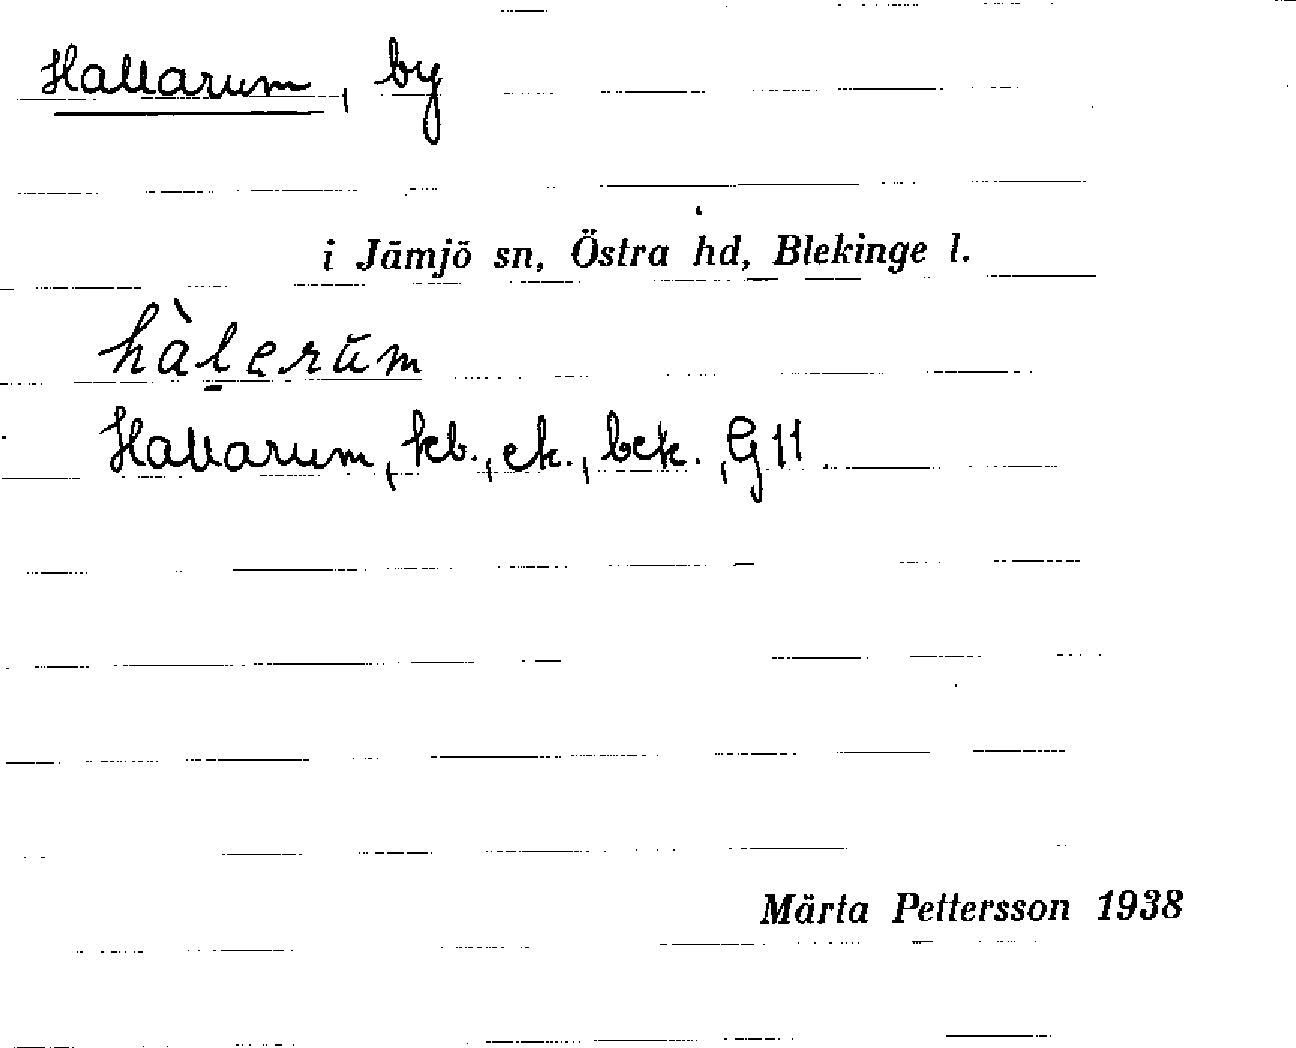 Hallarum, by
i Jämjö sn, Östra hd, Blekinge l.
hàl̠erŭm
Hallarum, kb., ek., bck., G11.
Märta Pettersson 1938